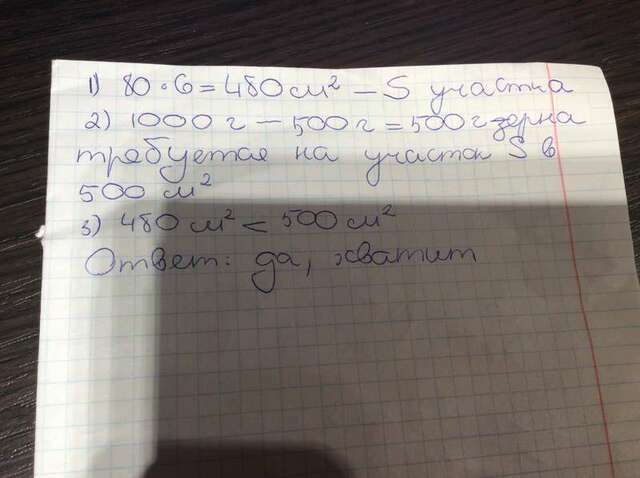 1) 80 · 6 = 480 см² – S участка
2) 1000 г – 500 г = 500 г зерна
требуется на участок S в
500 м²
3) 480 см² < 500 см²
Ответ: да, хватит